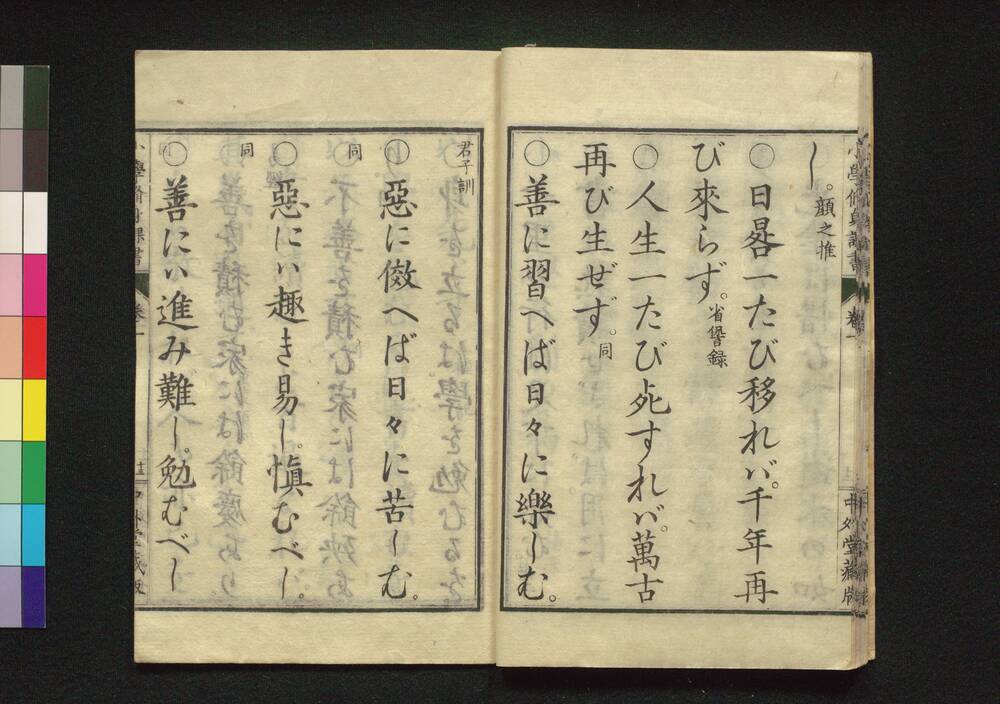 し。顔之推
○日晷一たび移れバ。千年再
び來らず。省諐録
○人生一たび死すれバ。萬古
再び生ぜず。同
○善に習へば日々に樂しむ。
君子訓
○惡に傚へば日々に苦しむ。
同
○惡にハ趣き易し。愼むべし。
同
○善にハ進み難し。勉むべし
小學修身課書
卷一
十二
中外堂藏版
小學脩身課書
卷一
十三